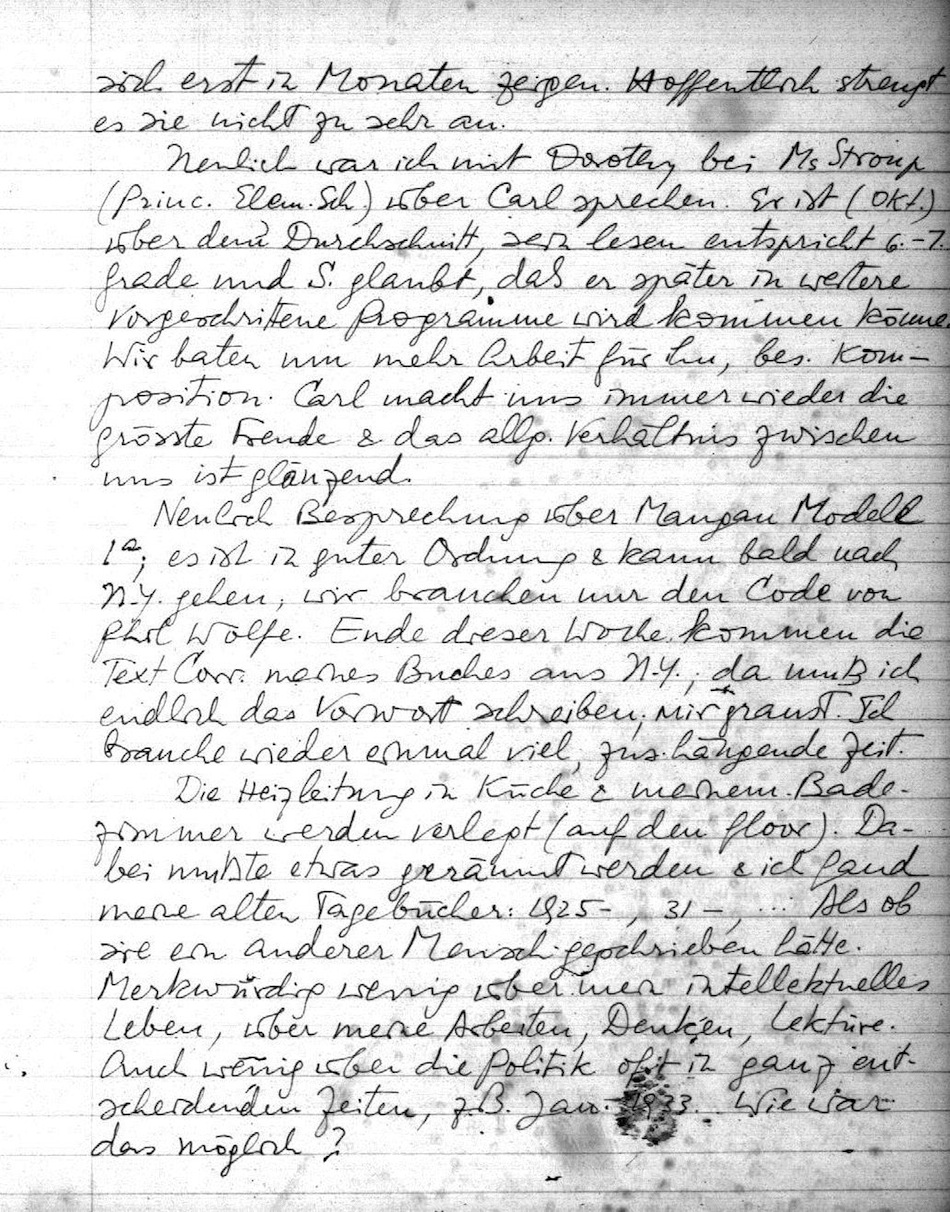 sich erst in Monaten zeigen. Hoffentlich strengt
es sie nicht zu sehr an.
Neulich war ich mit Dorothy bei Ms Stroup
(Princ. Elem. Sch.) über Carl sprechen. Er ist (Okt.)
über dem Durchschnitt, sein lesen entspricht 6.-7.
grade und S. glaubt, daß er später in weitere
vorgeschrittene Programme wird kommen könne
Wir baten um mehr Arbeit für ihn, bes. Kom-
position. Carl macht uns immer wieder die
grösste Freude & das allg. Verhältnis zwischen
uns ist glänzend.
Neulich Besprechung über Mangan Modell
1a; es ist in guter Ordnung & kann bald nach
N.Y. gehen; wir brauchen nur den Code von
Phil Wolfe. Ende dieser Woche kommen die
Text Corr. meines Buches aus N.Y.; da muß ich
endlich das Vorwort schreiben; mir graust. Ich
brauche wieder einmal viel, zus.hängende Zeit.
Die Heizleitung in Küche & meinem Bade-
zimmer werden verlegt (auf den floor). Da-
bei mußte etwas geräumt werden & ich fand
meine alten Tagebücher: 1925-, 31-, ... Als ob
sie ein anderer Mensch geschrieben hätte.
Merkwürdig wenig über mein intellektuelles
Leben, über meine Arbeiten, Denken, Lektüre.
Auch wenig über die Politik oft in ganz ent-
scheidenden Zeiten, z.B. Jan. 1933... Wie war
das möglich?